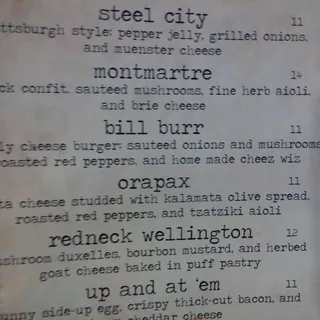 steel city 11
ttsburgh style: pepper jelly, grilled onions,
and muenster cheese
montmartre 14
ck confit, sauteed mushrooms, fine herb aioli,
and brie cheese
bill burr 11
ly cheese burger: sauteed onions and mushrooms
roasted red peppers, and home made cheez wiz
orapax 11
ta cheese studded with kalamata olive spread,
roasted red peppers, and tzatziki aioli
redneck wellington 12
ushroom duxelles, bourbon mustard, and herbed
goat cheese baked in puff pastry
up and at 'em 11
unny side-up egg, crispy thick-cut bacon, and
cheddar cheese